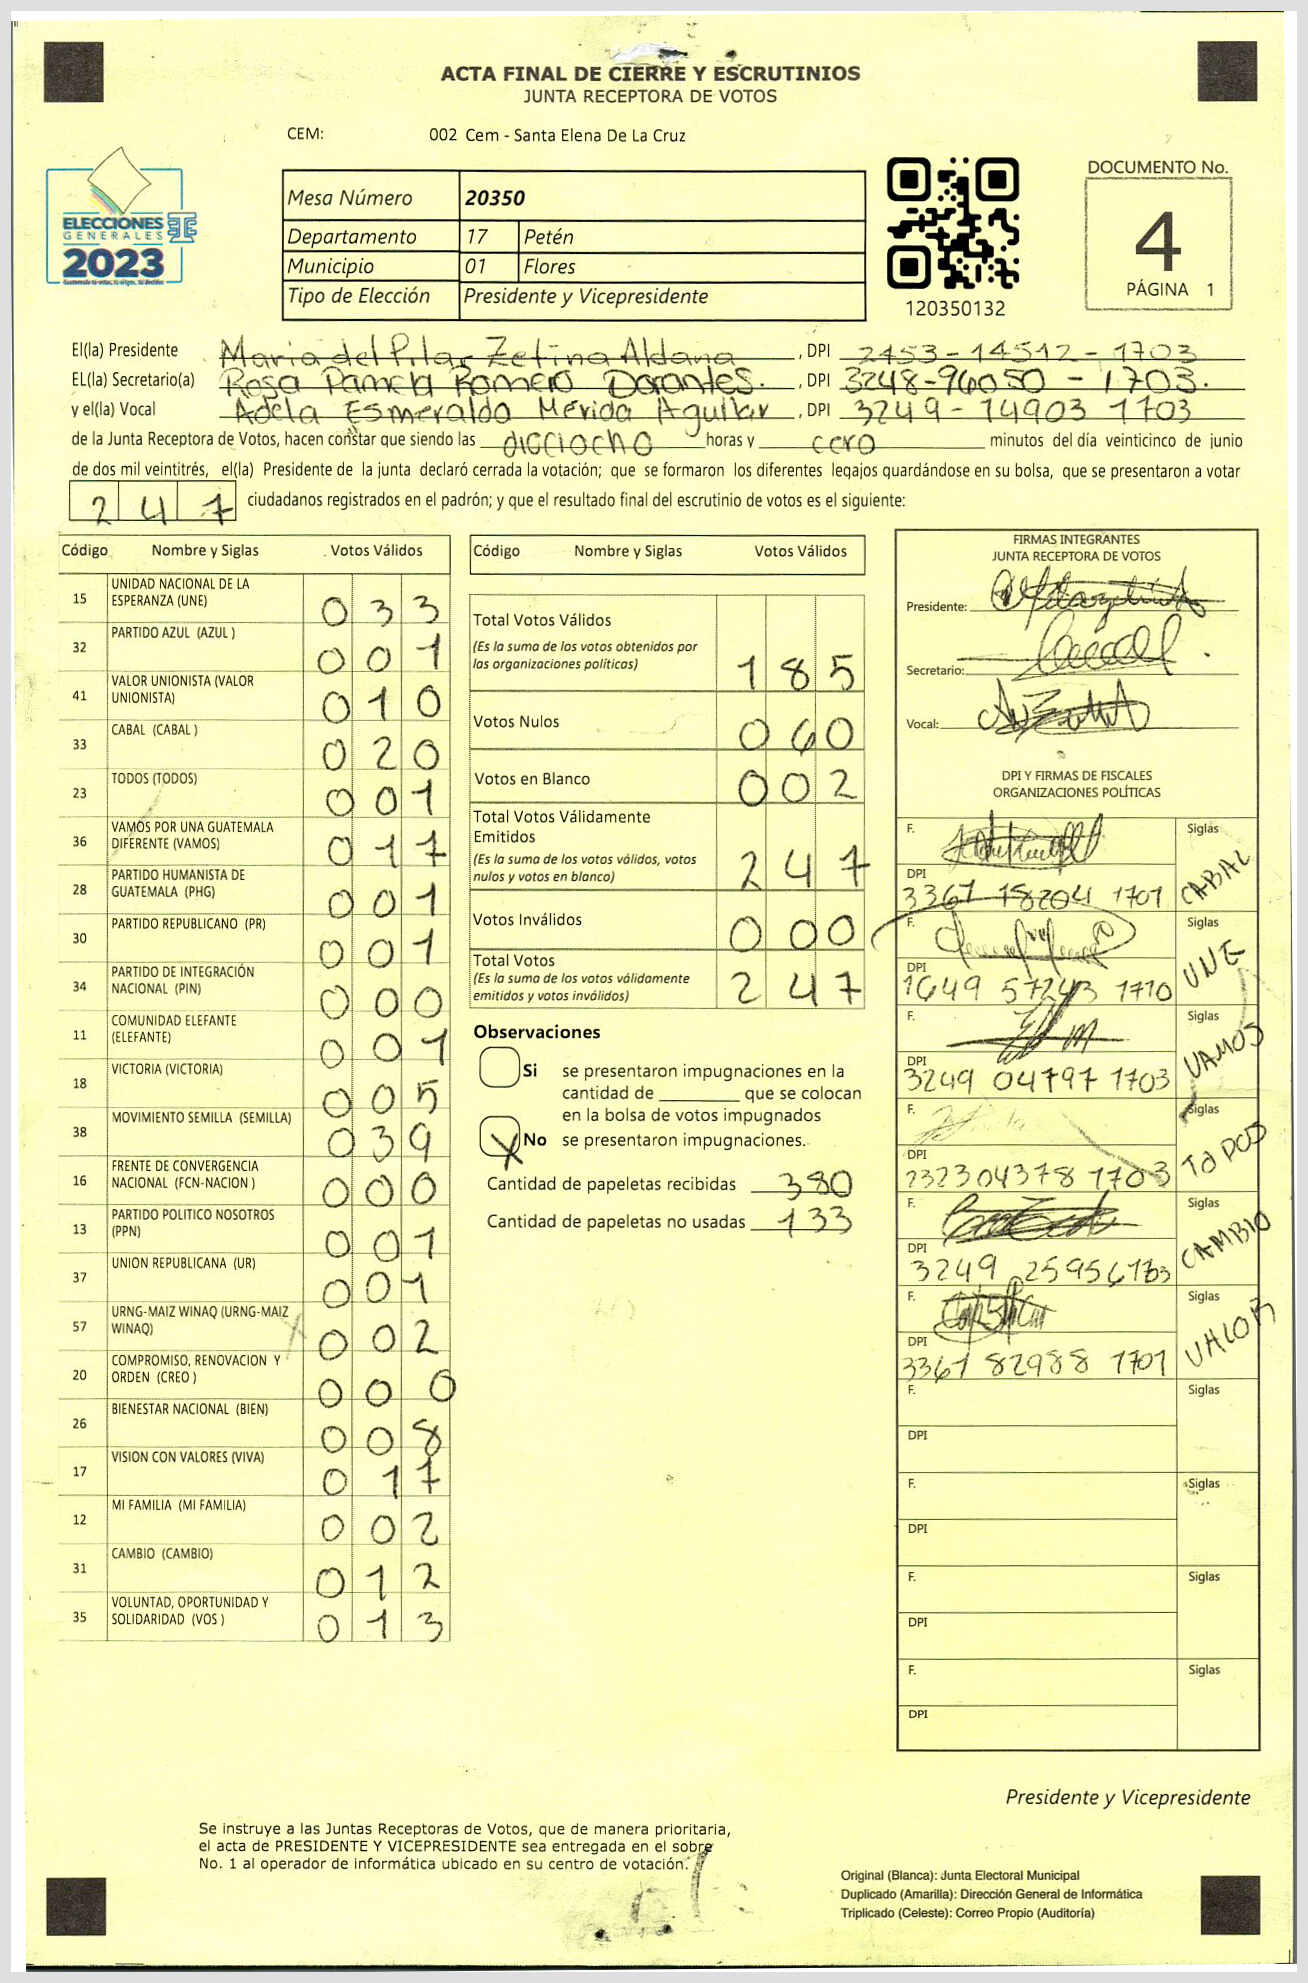 ACTA FINAL DE CIERRE Y ESCRUTINIOS
JUNTA RECEPTORA DE VOTOS
CEM: 002 Cem - Santa Elena De La Cruz
ELECCIONES
GENERALES
2023
Mesa Número 20350
Departamento 17 Petén
Municipio 01 Flores
Tipo de Elección Presidente y Vicepresidente
120350132
DOCUMENTO No.
4
PÁGINA 1
El(la) Presidente Maria del Pilar Zetina Aldana, DPI 2453-14512-1703
EL(la) Secretario(a) Rosa Pamela Romero Dorantes., DPI 3248-96050-1703.
y el(la) Vocal Adela Esmeralda Mérida Aguilar, DPI 3249-14903 1703
de la Junta Receptora de Votos, hacen constar que siendo las dieciocho horas y cero minutos del día veinticinco de junio
de dos mil veintitrés, el(la) Presidente de la junta declaró cerrada la votación; que se formaron los diferentes legajos guardándose en su bolsa, que se presentaron a votar
247 ciudadanos registrados en el padrón; y que el resultado final del escrutinio de votos es el siguiente:
Código Nombre y Siglas Votos Válidos
15 UNIDAD NACIONAL DE LA ESPERANZA (UNE) 033
32 PARTIDO AZUL (AZUL ) 001
41 VALOR UNIONISTA (VALOR UNIONISTA) 010
33 CABAL (CABAL ) 020
23 TODOS (TODOS) 001
36 VAMOS POR UNA GUATEMALA DIFERENTE (VAMOS) 017
28 PARTIDO HUMANISTA DE GUATEMALA (PHG) 001
30 PARTIDO REPUBLICANO (PR) 001
34 PARTIDO DE INTEGRACIÓN NACIONAL (PIN) 000
11 COMUNIDAD ELEFANTE (ELEFANTE) 001
18 VICTORIA (VICTORIA) 005
38 MOVIMIENTO SEMILLA (SEMILLA) 039
16 FRENTE DE CONVERGENCIA NACIONAL (FCN-NACION ) 000
13 PARTIDO POLITICO NOSOTROS (PPN) 001
37 UNION REPUBLICANA (UR) 001
57 URNG-MAIZ WINAQ (URNG-MAIZ WINAQ) 002
20 COMPROMISO, RENOVACION Y ORDEN (CREO ) 000
26 BIENESTAR NACIONAL (BIEN) 008
17 VISION CON VALORES (VIVA) 017
12 MI FAMILIA (MI FAMILIA) 002
31 CAMBIO (CAMBIO) 012
35 VOLUNTAD, OPORTUNIDAD Y SOLIDARIDAD (VOS ) 013
Código Nombre y Siglas Votos Válidos
Total Votos Válidos 185
(Es la suma de los votos obtenidos por
las organizaciones políticas)
Votos Nulos 060
Votos en Blanco 002
Total Votos Válidamente
Emitidos 247
(Es la suma de los votos válidos, votos
nulos y votos en blanco)
Votos Inválidos 000
Total Votos 247
(Es la suma de los votos válidamente
emitidos y votos inválidos)
Observaciones
Si se presentaron impugnaciones en la
cantidad de ________ que se colocan
en la bolsa de votos impugnados
X No se presentaron impugnaciones.
Cantidad de papeletas recibidas 380
Cantidad de papeletas no usadas 133
FIRMAS INTEGRANTES
JUNTA RECEPTORA DE VOTOS
Presidente:
Secretario:
Vocal:
DPI Y FIRMAS DE FISCALES
ORGANIZACIONES POLÍTICAS
F. Siglas
DPI 3367 18204 1701 CABAL
F. Siglas
DPI 1649 57243 1710 UNE
F. Siglas
DPI 3249 04797 1703 VAMOS
F. Siglas
DPI 2323 04378 1703 TODOS
F. Siglas
DPI 3249 25956 1703 CAMBIO
F. Siglas
DPI 3367 82988 1701 VALOR
F. Siglas
DPI
F. Siglas
DPI
F. Siglas
DPI
F. Siglas
DPI
Presidente y Vicepresidente
Se instruye a las Juntas Receptoras de Votos, que de manera prioritaria,
el acta de PRESIDENTE Y VICEPRESIDENTE sea entregada en el sobre
No. 1 al operador de informática ubicado en su centro de votación.
Original (Blanca): Junta Electoral Municipal
Duplicado (Amarilla): Dirección General de Informática
Triplicado (Celeste): Correo Propio (Auditoría)